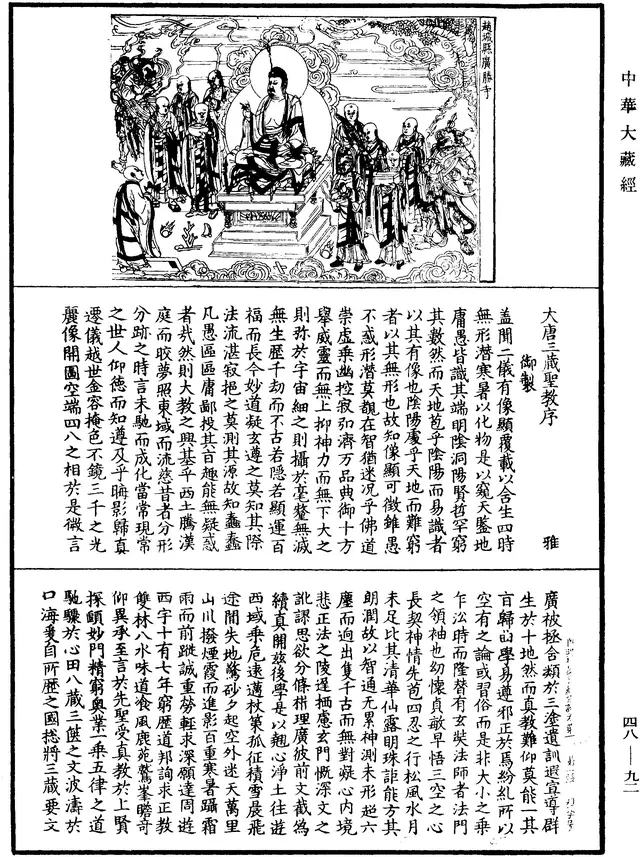 中華大藏經
趙城縣廣勝寺
大唐三藏聖教序 雅
御製
蓋聞二儀有像顯覆載以含生四時
無形潛寒暑以化物是以窺天鑒地
庸愚皆識其端明陰洞陽賢哲罕窮
其數然而天地苞乎陰陽而易識者
以其有像也陰陽處乎天地而難窮
者以其無形也故知像顯可徵雖愚
不惑形潛莫覩在智猶迷況乎佛道
崇虛乘幽控寂弘濟万品典御十方
舉威靈而無上抑神力而無下大之
則弥於宇宙細之則攝於毫釐無滅
無生歷千劫而不古若隱若顯運百
福而長今妙道凝玄遵之莫知其際
法流湛寂挹之莫測其源故知蠢蠢
凡愚區區庸鄙投其旨趣能無疑惑
者哉然則大教之興基乎西土騰漢
庭而皎夢照東域而流慈昔者分形
分跡之時言未馳而成化當常現常
之世人仰德而知遵及乎晦影歸真
遷儀越世金容掩色不鏡三千之光
麗像開圖空端四八之相於是微言
廣被拯含類於三塗遺訓遐宣導群
生於十地然而真教難仰莫能一其
旨歸曲學易遵邪正於焉紛糺所以
空有之論或習俗而是非大小之乘
乍沿時而隆替有玄奘法師者法門
之領袖也幼懷貞敏早悟三空之心
長契神情先苞四忍之行松風水月
未足比其清華仙露明珠詎能方其
朗潤故以智通无累神測未形超六
塵而迥出隻千古而無對凝心內境
悲正法之陵遲栖慮玄門慨深文之
訛謬思欲分條析理廣彼前文截偽
續真開茲後學是以翹心淨土往遊
西域乘危遠邁杖策孤征積雪晨飛
途間失地驚砂夕起空外迷天萬里
山川撥煙霞而進影百重寒暑躡霜
雨而前蹤誠重勞輕求深願達周遊
西宇十有七年窮歷道邦詢求正教
雙林八水味道飡風鹿苑鷲峯瞻奇
仰異承至言於先聖受真教於上賢
探賾妙門精窮奧業一乘五律之道
馳驟於心田八藏三篋之文波濤於
口海爰自所歷之國捴將三藏要文
四八—九二